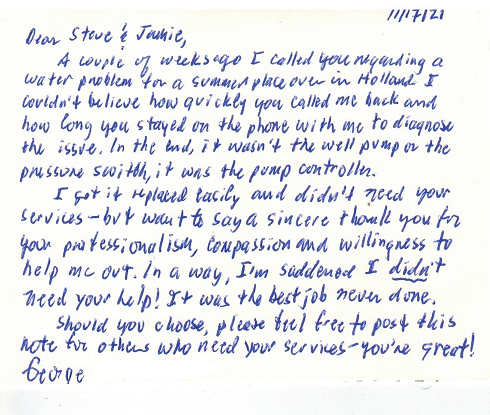 11/17/21
Dear Steve & Jackie,
A couple of weeks ago I called you regarding a
water problem for a summer place over in Holland. I
couldn't believe how quickly you called me back and
how long you stayed on the phone with me to diagnose
the issue. In the end, it wasn't the well pump or the
pressure switch, it was the pump controller.
I got it replaced easily and didn't need your
services - but want to say a sincere thank you for
your professionalism, compassion and willingness to
help me out. In a way, I'm saddened I didn't
need your help! It was the best job never done.
Should you choose, please feel free to post this
note for others who need your services - you're great!
George